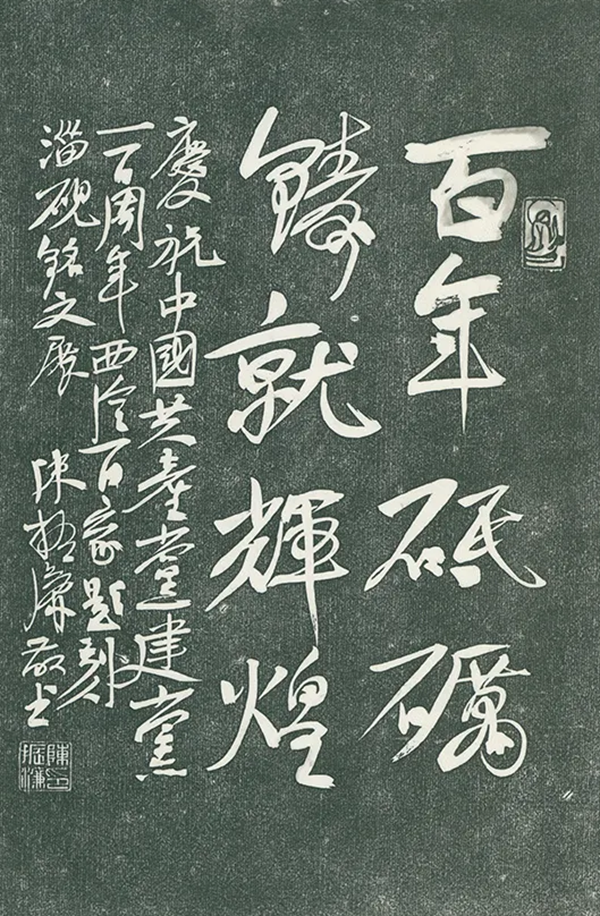 百年砥礪
鑄就輝煌
慶祝中國共產黨建黨
一百周年西泠百家題刻
淄硯銘文展 陳振濂敬書
陳印振濂